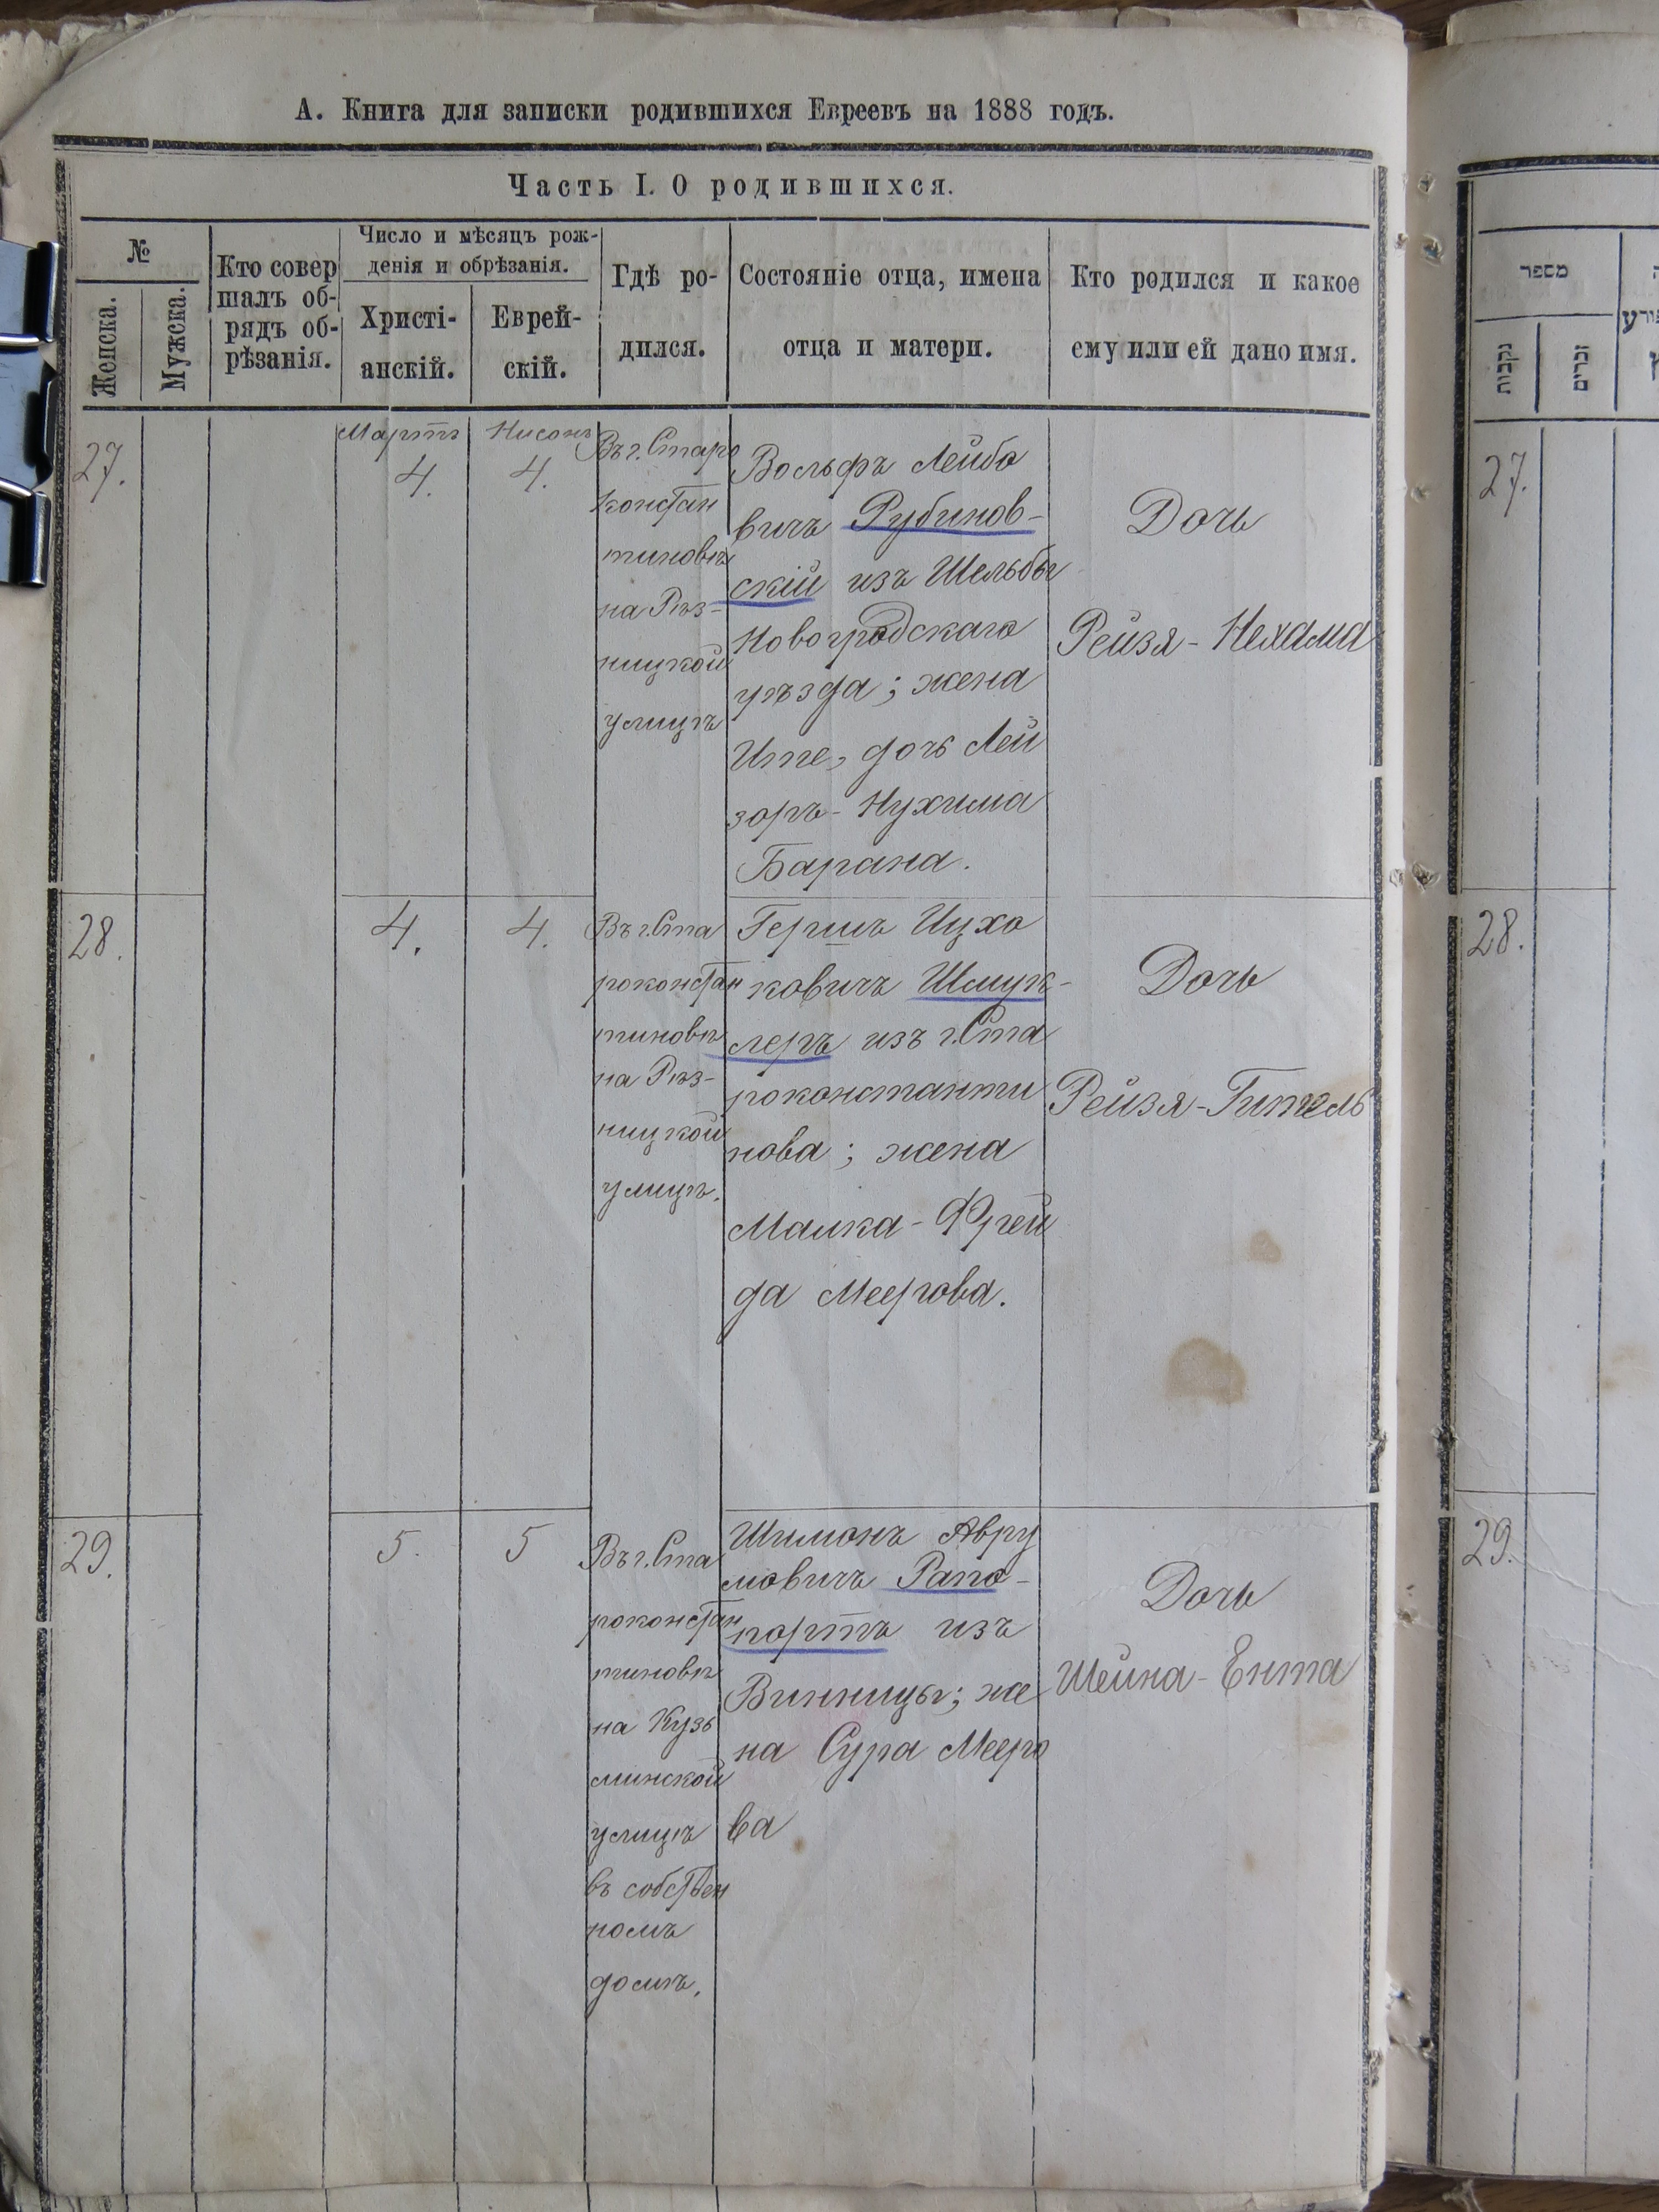 А. Книга для записки родившихся Евреевъ на 1888 годъ.
Часть I. О родившихся.
№
Женска.
Мужска.
Кто совер
шалъ об-
рядъ об-
рѣзанія.
Число и мѣсяцъ рож-
денія и обрѣзанія.
Христі-
анскій.
Еврей-
скій.
Гдѣ ро-
дился.
Состояніе отца, имена
отца и матери.
Кто родился и какое
ему или ей дано имя.
27.
Мартъ
4.
Нисонъ
4.
Въ г. Старо
констан
тиновѣ
на Рѣз-
ницкой
улицѣ
Вольфъ Лейбо
вичъ Рубинов-
скій изъ Шельбы
Новоградскаго
уѣзда; жена
Ите, дочь Лей
зоръ-Нухима
Барана.
Дочь
Рейзя-Нехама
28.
4.
4.
Въ г. Ста
роконстан
тиновѣ
на Рѣз-
ницкой
улицѣ.
Гершъ Ицхо
ковичъ Шмук-
леръ изъ г. Ста
роконстанти
нова; жена
Малка-Фрей
да Меерова.
Дочь
Рейзя-Гитель
29.
5.
5
Въ г. Ста
роконстан
тиновѣ
на Кузь
минской
улицѣ
въ собствен
номъ
домѣ.
Шимонъ Авру
мовичъ Рапо-
портъ изъ
Винницы; же
на Сура Мееро
ва
Дочь
Шейна-Ента
מספר
נקבות
זכרים
27.
28.
29.